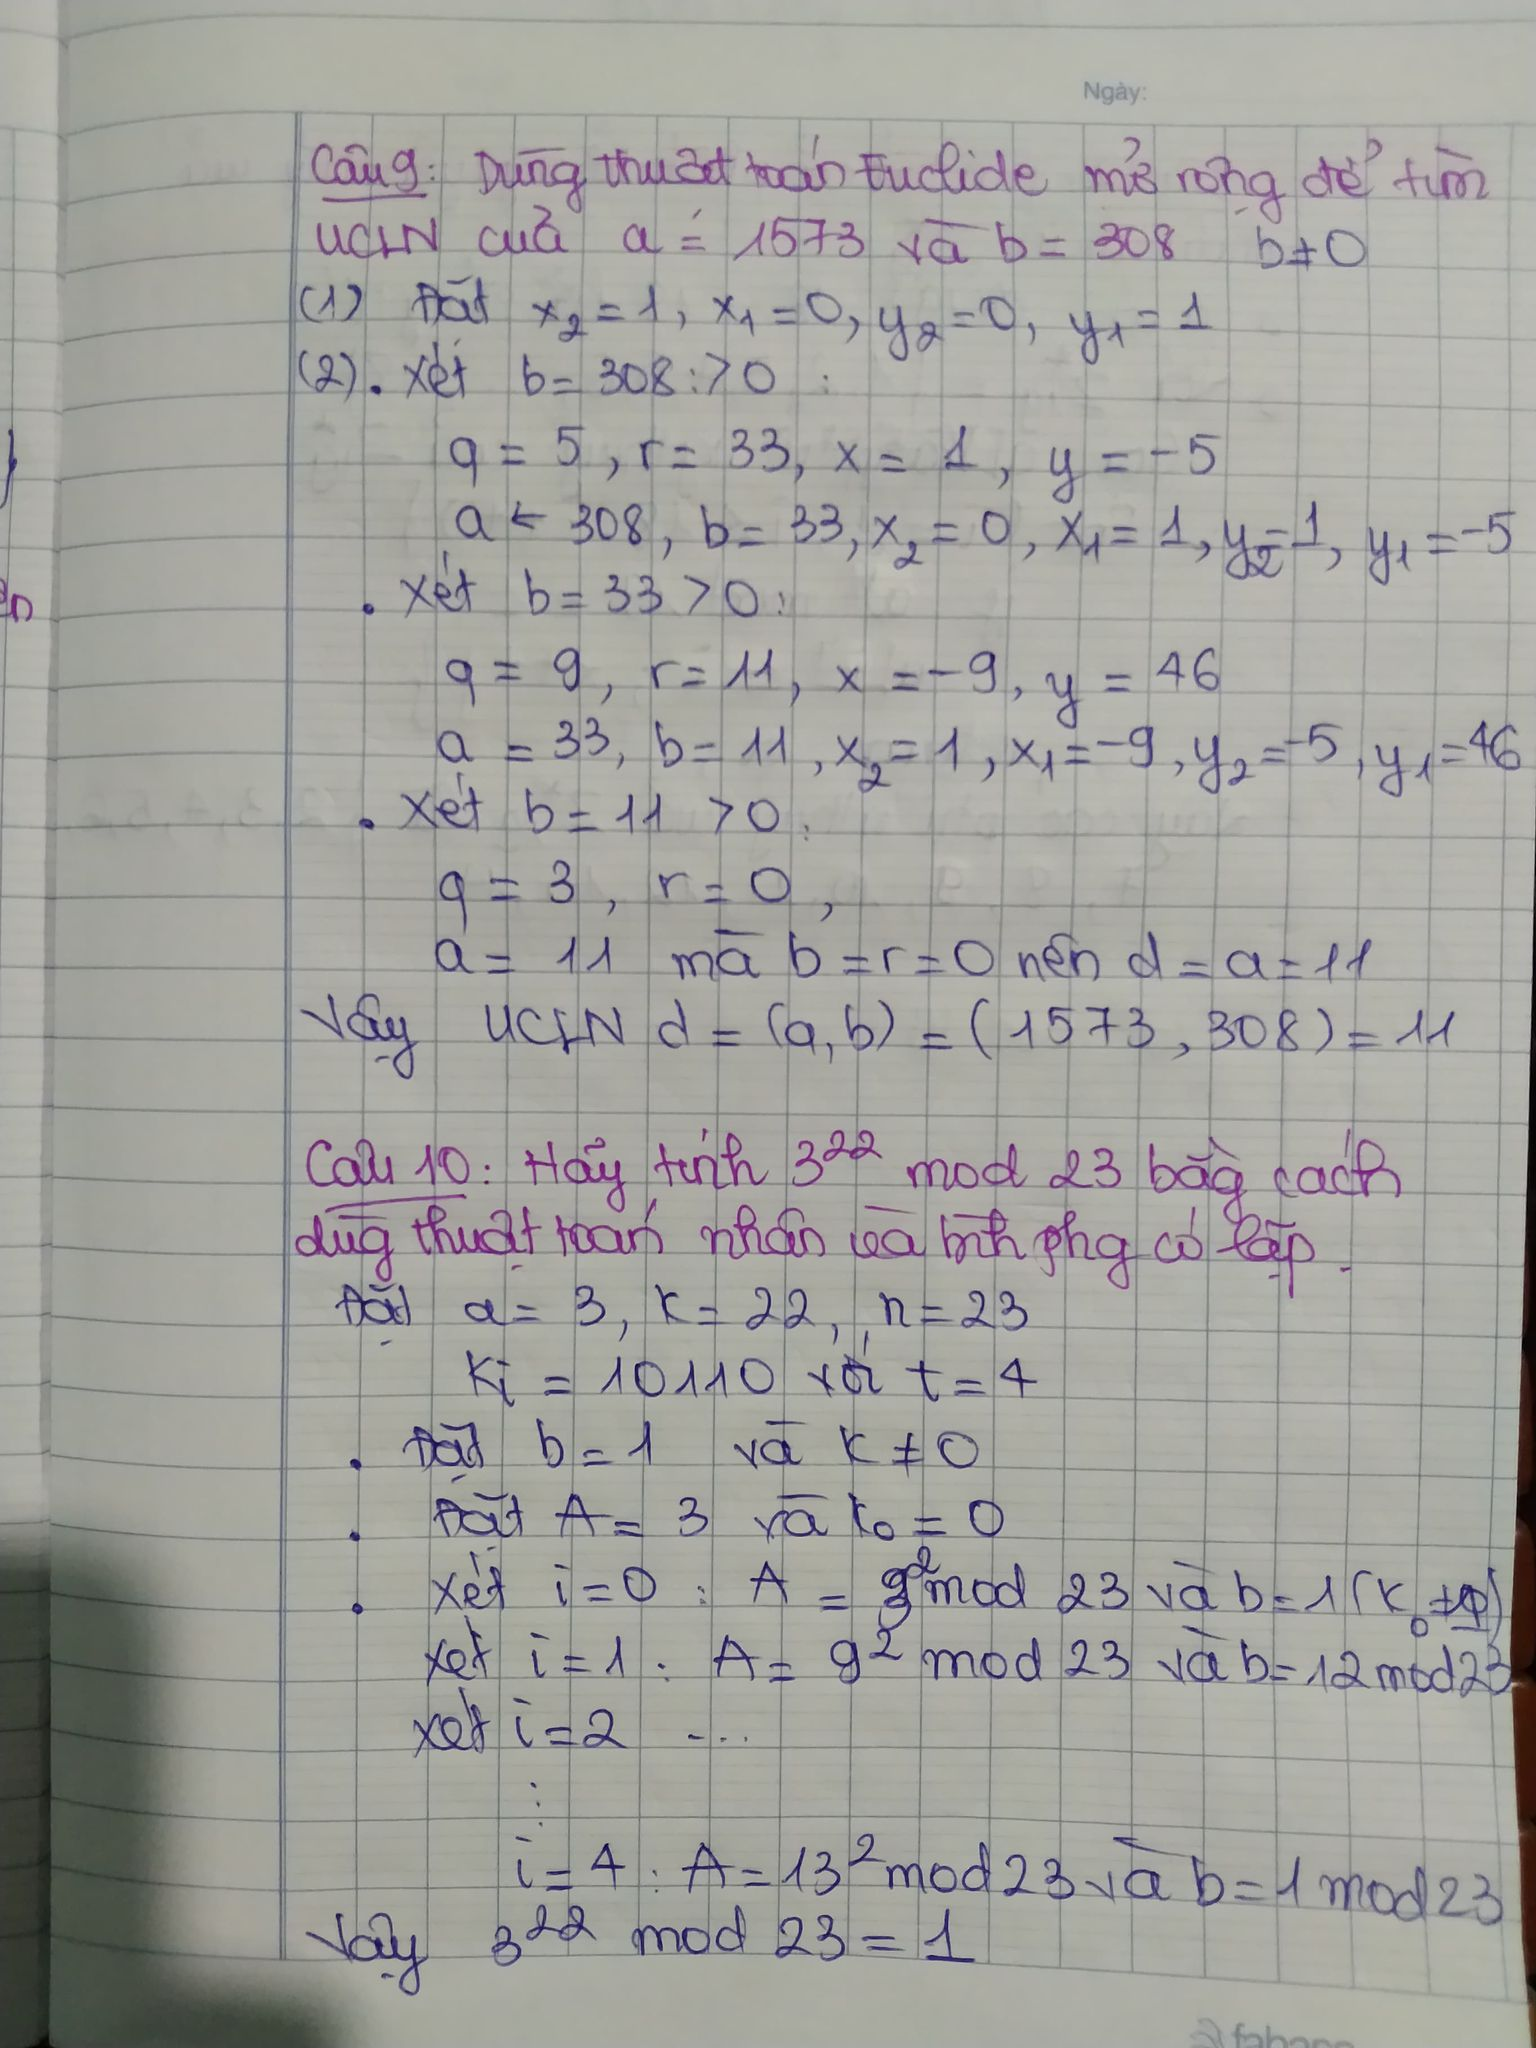 Ngày:
Câu 9: Dùng thuật toán Euclide mở rộng để tìm
UCLN của a = 1573 và b = 308 b ≠ 0
(1) Đặt x₂ = 1, x₁ = 0, y₂ = 0, y₁ = 1
(2). Xét b = 308 : > 0 :
q = 5, r = 33, x = 1, y = -5
a ← 308, b = 33, x₂ = 0, x₁ = 1, y₂ = 1, y₁ = -5
. Xét b = 33 > 0 :
q = 9, r = 11, x = -9, y = 46
a = 33, b = 11, x₂ = 1, x₁ = -9, y₂ = -5, y₁ = 46
. Xét b = 11 > 0 :
q = 3, r = 0,
a = 11 mà b = r = 0 nên d = a = 11
Vậy UCLN d = (a, b) = (1573, 308) = 11
Câu 10: Hãy tính 3²² mod 23 bằg cách
dùg thuật toán nhân và bình phg có lặp.
Đặt a = 3, k = 22, n = 23
Ki = 10110 với t = 4
. Đặt b = 1 và k ≠ 0
. Đặt A = 3 và k₀ = 0
. Xét i = 0 : A = 3² mod 23 và b = 1 (k₀ ≠ 1)
Xét i = 1 : A = 9² mod 23 và b = 12 mod 23
Xét i = 2 ...
⋮
i = 4 : A = 13² mod 23 và b = 1 mod 23
Vậy 3²² mod 23 = 1